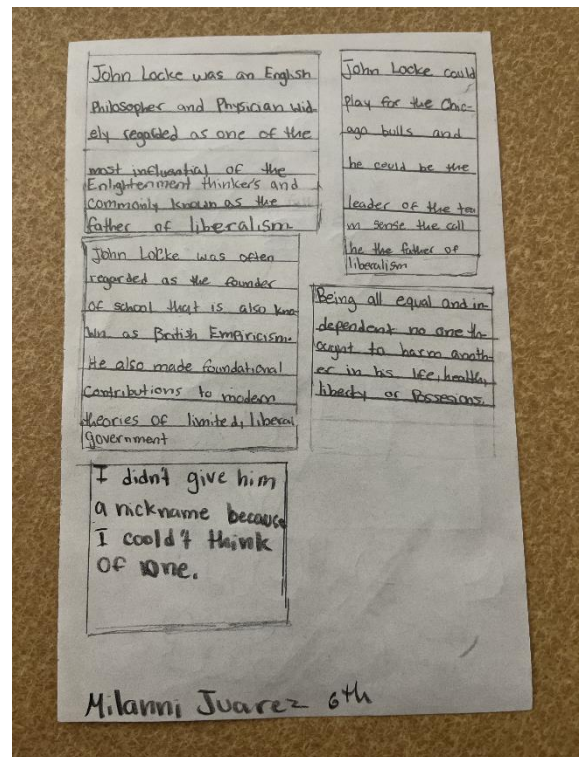 John Locke was an English
Philosopher and Physician wid-
ely regarded as one of the
most influential of the
Enlightenment thinkers and
commonly known as the
father of liberalism
John Locke was often
regarded as the founder
of school that is also kno
wn as British Empiricism.
He also made foundational
Contributions to modern
theories of limited, liberal
government
I didn't give him
a nickname because
I coold't think
of one.
John Locke could
play for the Chic-
ago bulls and
he could be the
leader of the
sense the call
he the father of
liberalism
Being all equal and in-
dependent no one th-
ought to harm anoth-
er in his life, health,
liberty or Possesions.
Milanni Juarez 6th